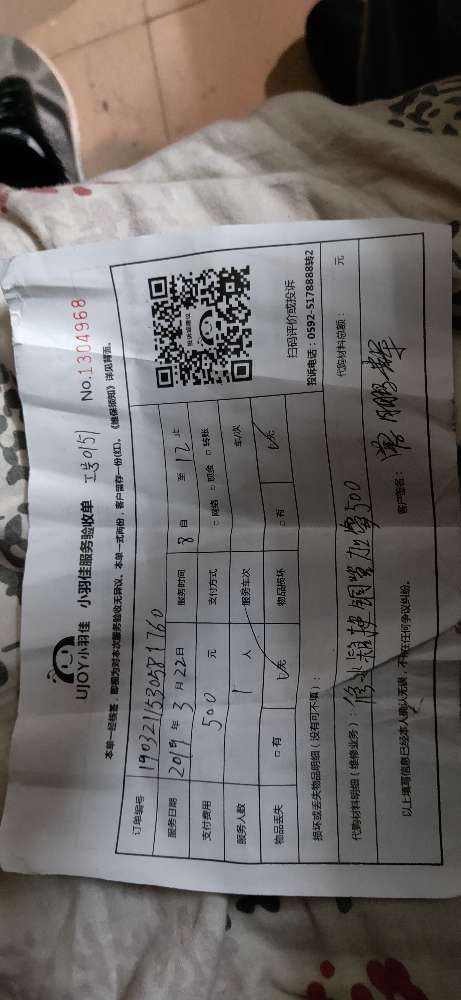 UJOY小羽佳 小羽佳服务验收单 工号0151 No.1304968
本单一经核签，即视为对本次服务验收无异议。本单一式两份，客户留存一份(红)。《维保须知》详见背面。
订单编号 1903211530581760
服务日期 2019年3月22日 服务时间 8自至12止
支付费用 500元 支付方式 □网络 □现金 □转账
服务人数 1人 服务车次 车/次
物品丢失 □有 无 物品损坏 □有 无
投诉或建议
扫码评价或投诉
投诉电话：0592-5178888转2
损坏或丢失物品明细（没有可不填）：
代购材料明细（维修业务）：修水箱换铜管加雪500 代购材料总额： 元
以上填写信息已经本人确认无误，不存在任何争议纠纷。 客户签名：